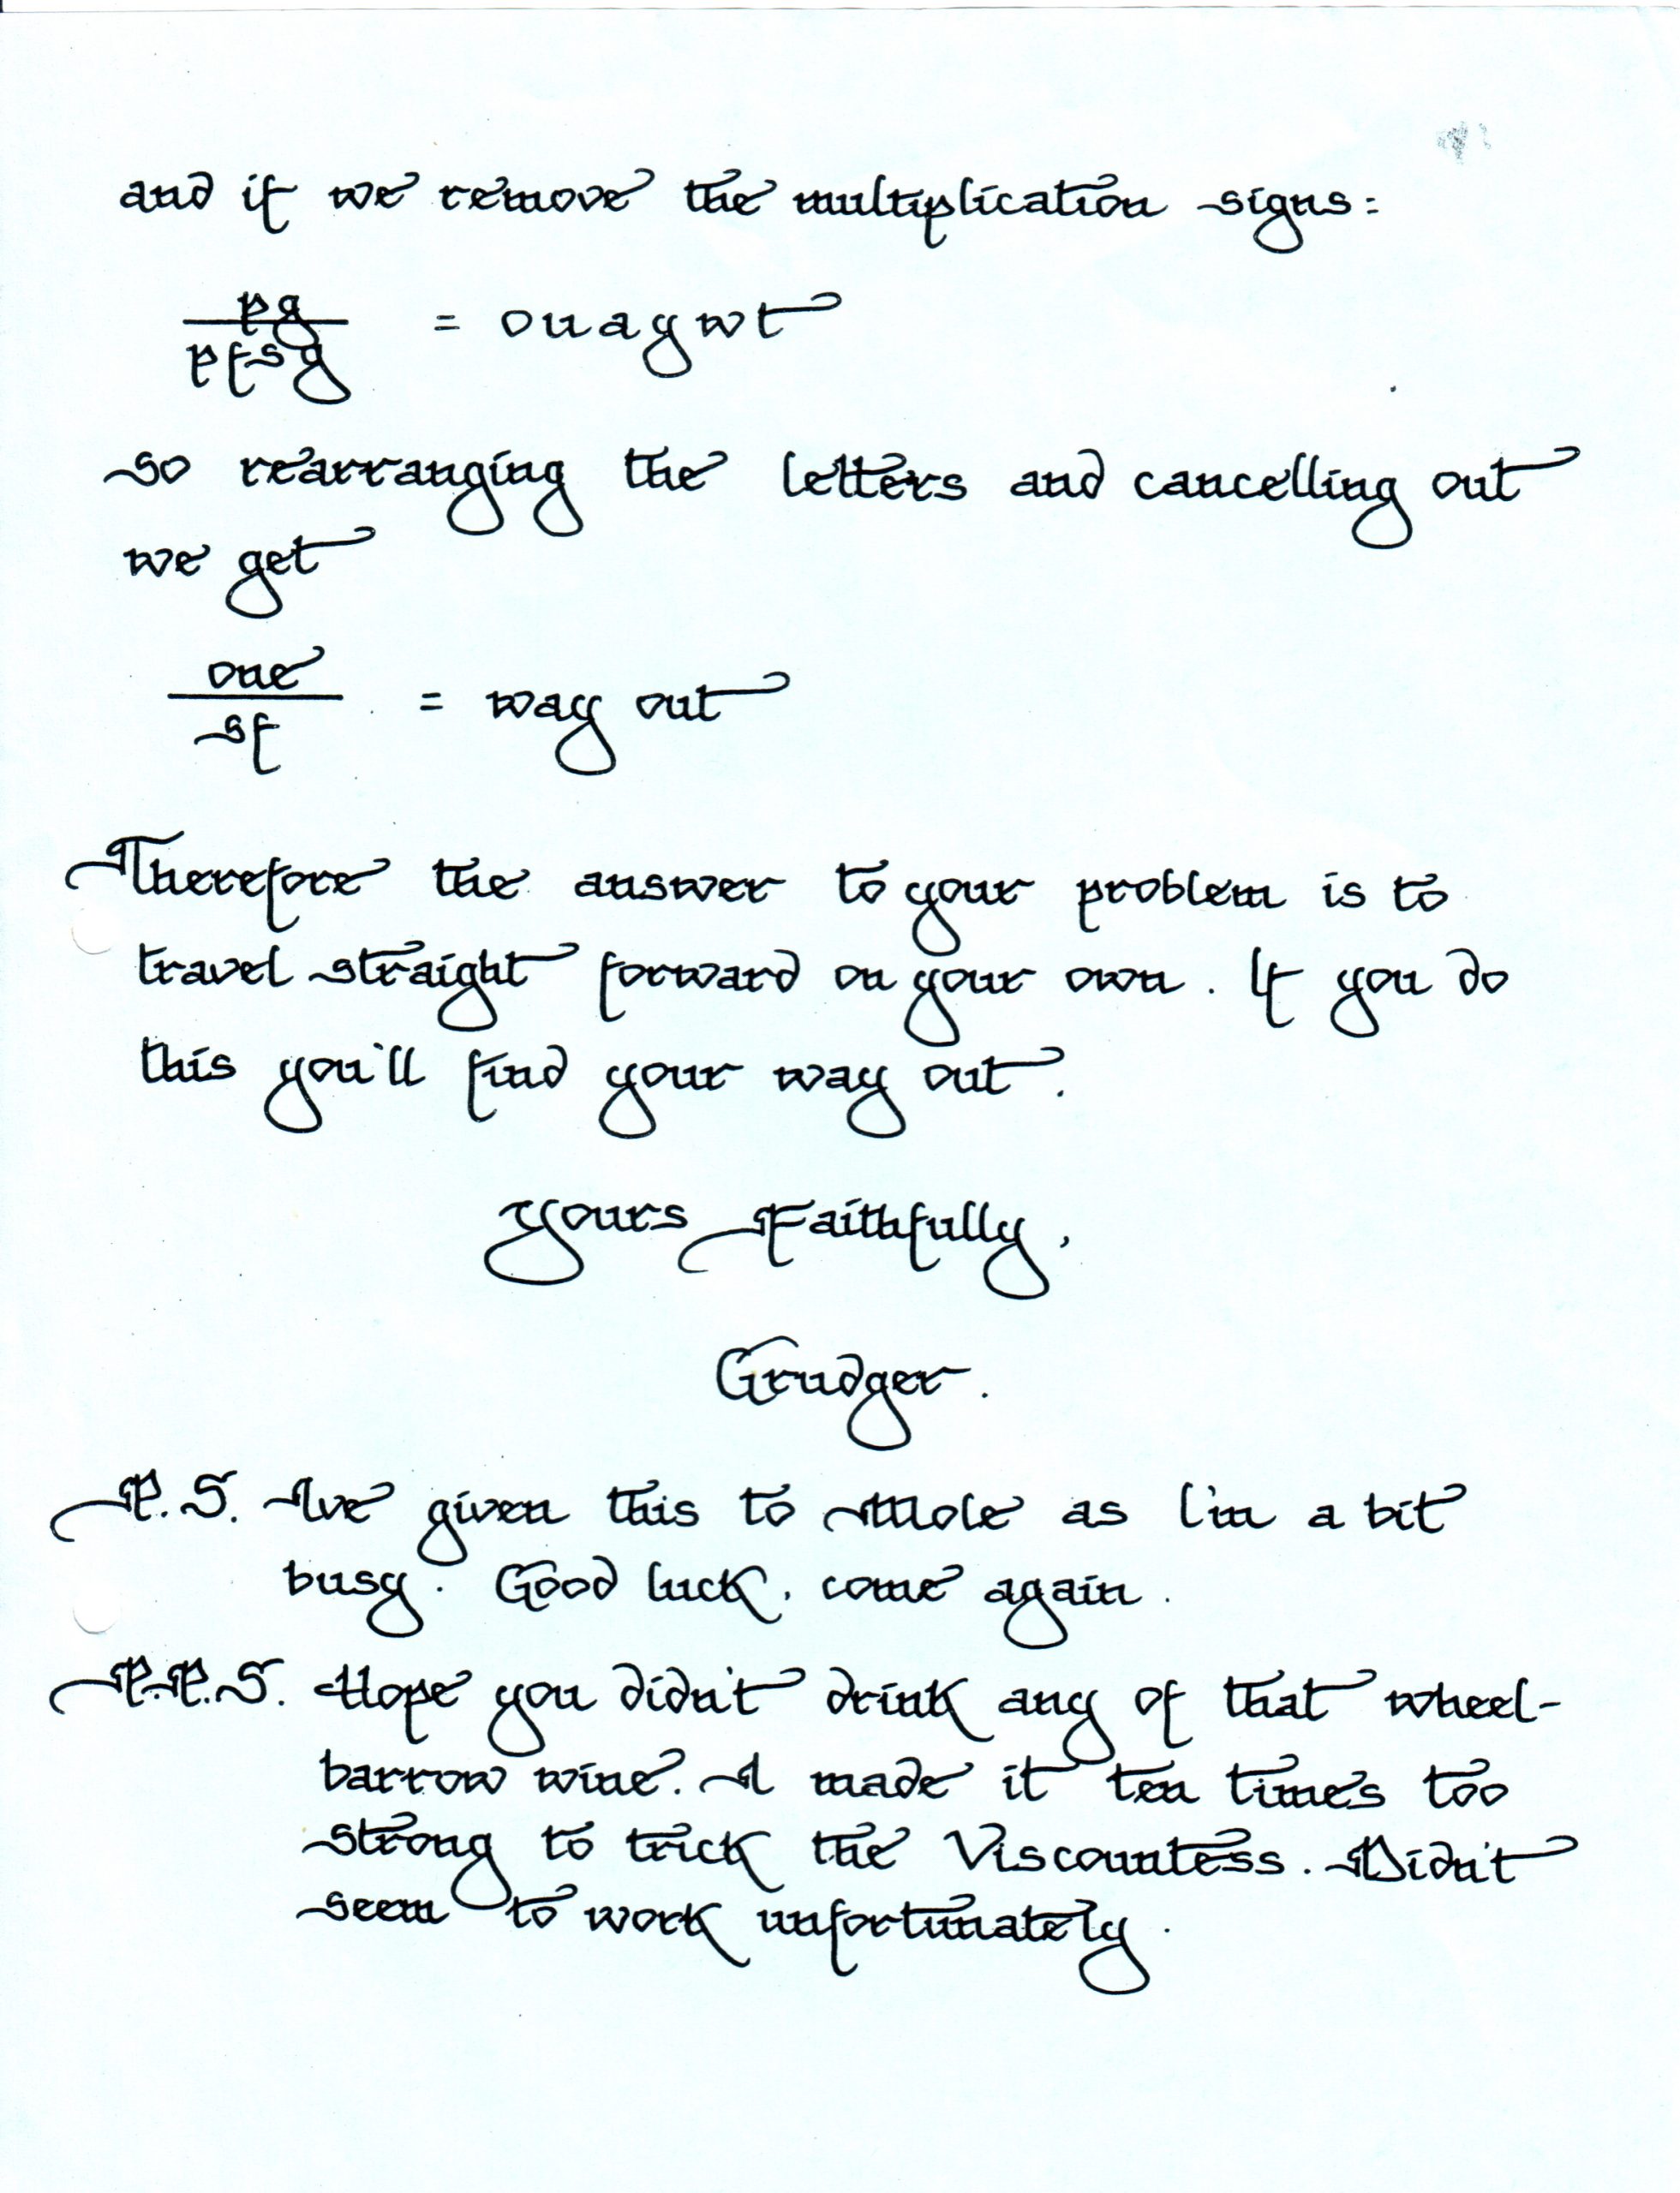 and if we remove the multiplication signs:
pg
pfsg
= ouagwt
so rearranging the letters and cancelling out
we get
one
sf
= way out
Therefore the answer to your problem is to
travel straight forward on your own. If you do
this you'll find your way out.
Yours Faithfully,
Grudger.
P.S. I've given this to Mole as I'm a bit
busy. Good luck, come again.
P.P.S. Hope you didn't drink any of that wheel-
barrow wine. I made it ten times too
strong to trick the Viscountess. Didn't
seem to work unfortunately.